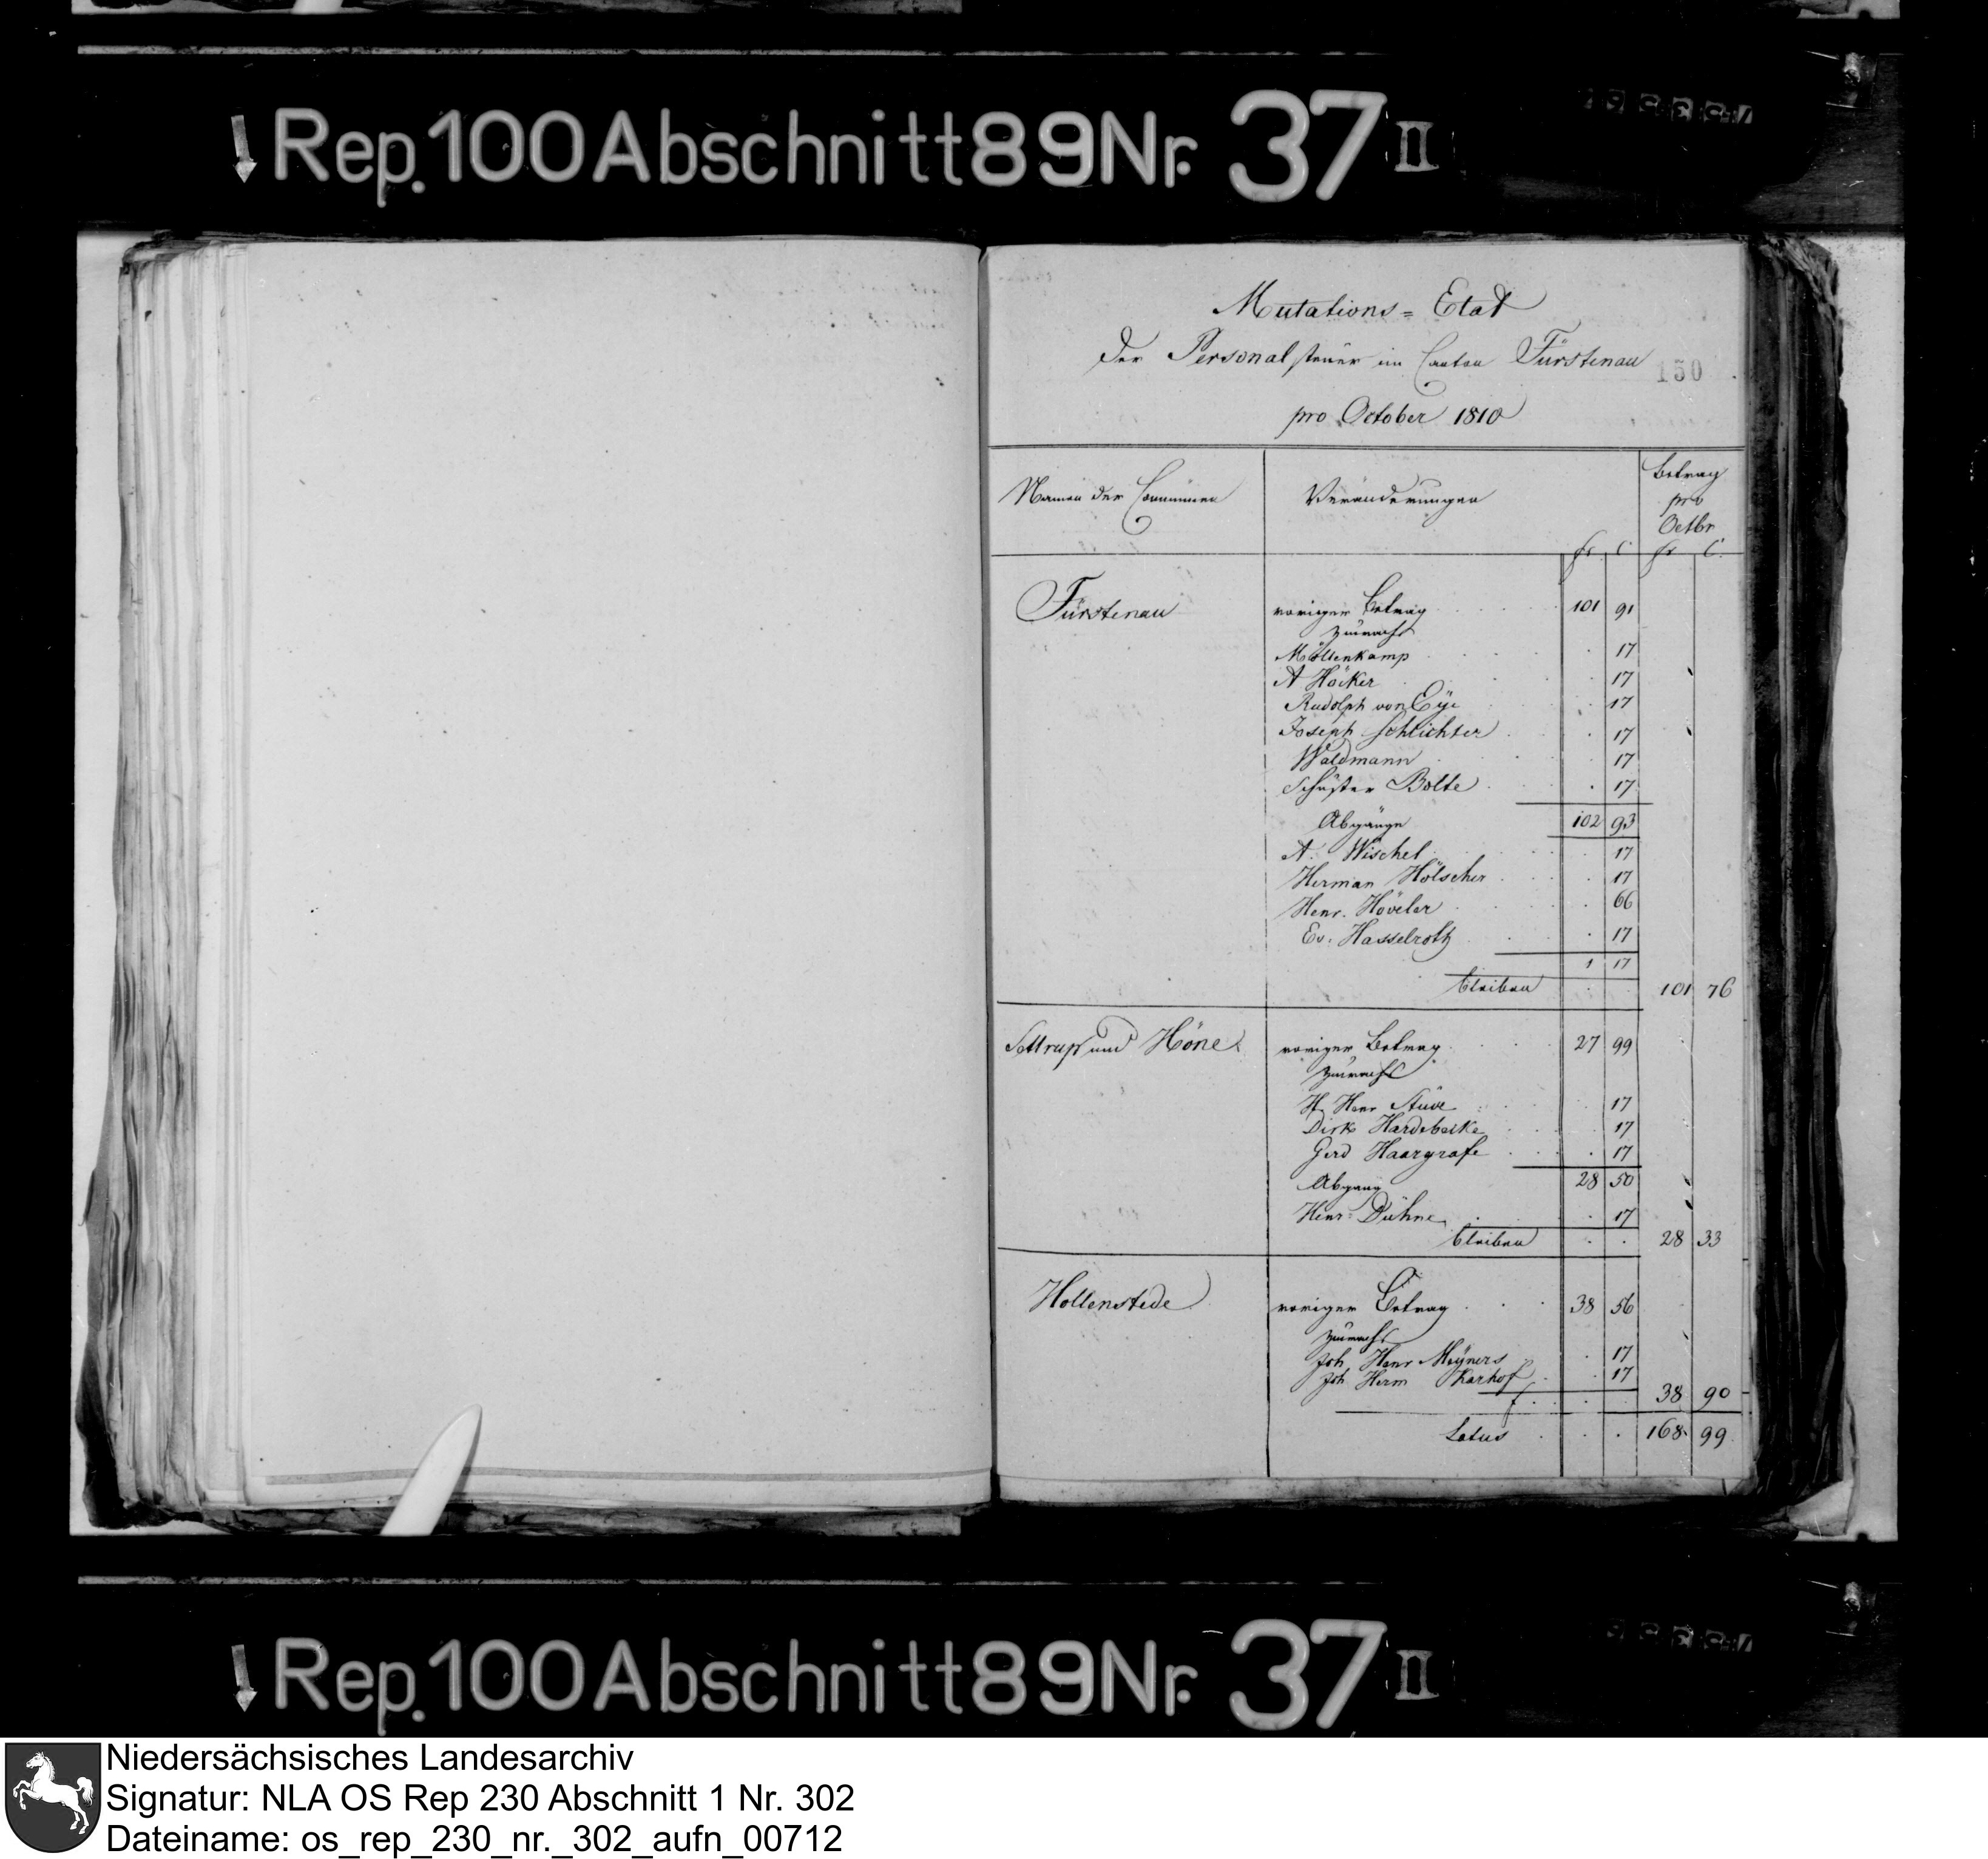 Rep. 100 Abschnitt 89 Nr. 37 II
Mutations = Etat
der Personalsteuer im Canton Fürstenau
150
pro October 1810
Namen der Communen Veränderungen Betrag pro Octbr
fr. C. fr C.
Fürstenau voriger Betrag 101 91
zuwachs
Möllenkamp 17
A Höcker 17
Rudolph von Eye 17
Joseph Schlichter 17
Waldmann 17
Schuster Bolte 17
Abgänge 102 93
A. Wischel 17
Herman Hölscher 17
Henr. Höveler 66
Ev. Hasselroth 17
1 17
bleiben 101 76
Settrup und Höne voriger Betrag 27 99
zuwachs
H. Henr Stüve 17
Dirk Hardebecke 17
Gerd Haargrafe 17
Abgang 28 50
Henr. Dühne 17
bleiben 28 33
Hollenstede voriger Betrag 38 56
zuwachs
Joh Henr Meyners 17
Joh Herm 17
38 90
Latus 168 99
Rep. 100 Abschnitt 89 Nr. 37 II
Niedersächsisches Landesarchiv
Signatur: NLA OS Rep 230 Abschnitt 1 Nr. 302
Dateiname: os_rep_230_nr._302_aufn_00712